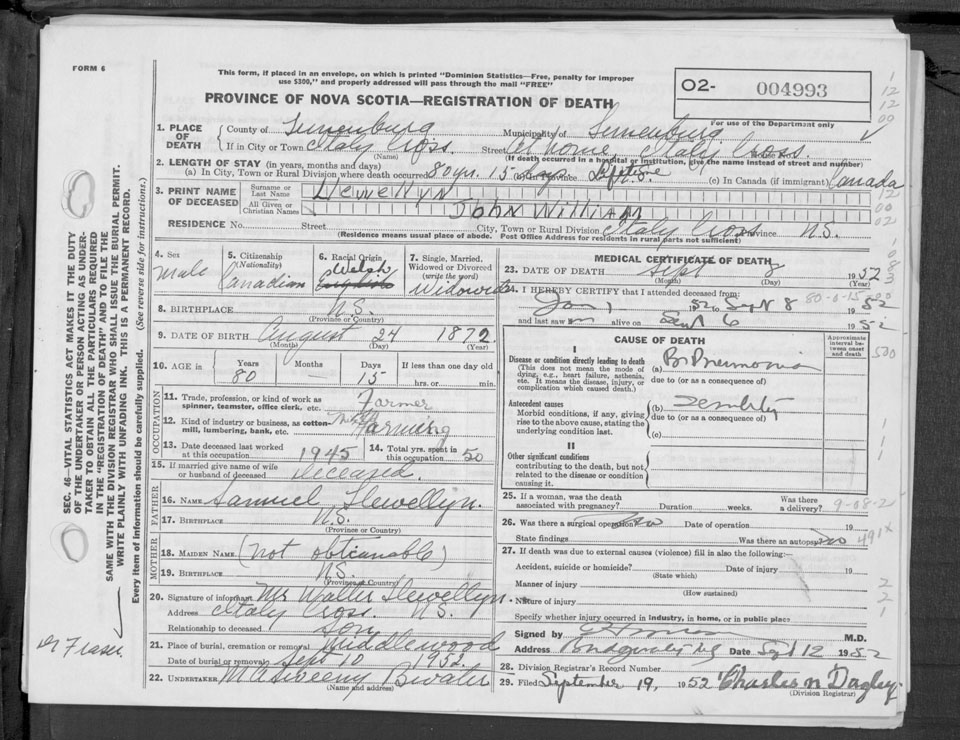 FORM 6
This form, if placed in an envelope, on which is printed "Dominion Statistics—Free, penalty for improper
use $300," and properly addressed will pass through the mail "FREE"
PROVINCE OF NOVA SCOTIA—REGISTRATION OF DEATH
02- 004993
For use of the Department only
1. PLACE OF DEATH County of Lunenburg Municipality of Lunenburg
If in City or Town Italy Cross. Street at home, Italy Cross.
(Name) (If death occurred in a hospital or institution, give the name instead of street and number)
2. LENGTH OF STAY (in years, months and days)
(a) In City, Town or Rural Division where death occurred 80 yr. 15 days Province Lifetime N.S. (c) In Canada (if immigrant) Canada
3. PRINT NAME OF DECEASED Surname or Last Name Llewellyn
All Given or Christian Names John William
RESIDENCE No. Street City, Town or Rural Division Italy Cross Province N.S.
(Residence means usual place of abode. Post Office Address for residents in rural parts not sufficient)
4. Sex Male
5. Citizenship (Nationality) Canadian
6. Racial Origin Welsh
7. Single, Married, Widowed or Divorced (write the word) Widowed
8. BIRTHPLACE N.S.
(Province or Country)
9. DATE OF BIRTH August 24 1872
(Month) (Day) (Year)
10. AGE in Years 80 Months Days 15 If less than one day old hrs. or min.
OCCUPATION
11. Trade, profession, or kind of work as spinner, teamster, office clerk, etc. Farmer
12. Kind of industry or business, as cotton-mill, lumbering, bank, etc. Mixed Farming
13. Date deceased last worked at this occupation 1945
14. Total yrs. spent in this occupation 50
15. If married give name of wife or husband of deceased Deceased.
FATHER
16. NAME Samuel Llewellyn.
17. BIRTHPLACE N.S.
(Province or Country)
MOTHER
18. MAIDEN NAME (not obtianable)
19. BIRTHPLACE N.S.
(Province or Country)
20. Signature of informant Mr Walter Llewellyn.
Address Italy Cross. N.S.
Relationship to deceased Son
21. Place of burial, cremation or removal Middlewood
Date of burial or removal Sept 10 1952.
22. UNDERTAKER
(Name and address)
MEDICAL CERTIFICATE OF DEATH
23. DATE OF DEATH Sept 8 1952
(Month) (Day) (Year)
24. I HEREBY CERTIFY that I attended deceased from:
Jan 1 1952 to Sept 8 1952 80-0-15
and last saw him alive on Sept 6 1952
CAUSE OF DEATH
Approximate interval between onset and death
I
Disease or condition directly leading to death (a) Br Pneumonia
(This does not mean the mode of dying, e.g., heart failure, asthenia, etc. It means the disease, injury, or complication which caused death.)
due to (or as a consequence of)
Antecedent causes (b) Senility
Morbid conditions, if any, giving rise to the above cause, stating the underlying condition last.
due to (or as a consequence of)
(c)
II
Other significant conditions
contributing to the death, but not related to the disease or condition causing it.
25. If a woman, was the death associated with pregnancy? Duration weeks. Was there a delivery?
26. Was there a surgical operation? No Date of operation 19
State findings Was there an autopsy? no 491x
27. If death was due to external causes (violence) fill in also the following:—
Accident, suicide or homicide? Date of injury 19
(State which)
Manner of injury
(How sustained)
Nature of injury
Specify whether injury occurred in industry, in home, or in public place
Signed by M.D.
Address Bridgewater NS Date Sept 12 1952
28. Division Registrar's Record Number
29. Filed September 19, 1952 Charles N Dagley.
(Division Registrar)
SEC. 46—VITAL STATISTICS ACT MAKES IT THE DUTY
OF THE UNDERTAKER OR PERSON ACTING AS UNDER-
TAKER TO OBTAIN ALL THE PARTICULARS REQUIRED
IN THE "REGISTRATION OF DEATH" AND TO FILE THE
SAME WITH THE DIVISION REGISTRAR WHO SHALL ISSUE THE BURIAL PERMIT.
WRITE PLAINLY WITH UNFADING INK. THIS IS A PERMANENT RECORD.
Every item of information should be carefully supplied. (See reverse side for instructions.)
Dr Fraser